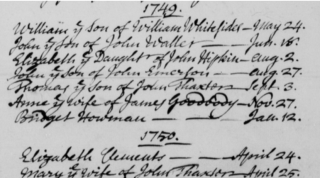 1749.
William ye Son of William Whitefides — May 24.
John ye Son of John Waller — Jun. 18.
Elizabeth ye Daughter of John Hipkin — Aug. 2.
John ye Son of John Emerson — Aug 27
Thomas ye Son of John Thaxter — Sept. 3.
Anne ye Wife of James Goobody — Nov. 27.
Bridget Howman — Jan. 12.
1750.
Elizabeth Clements — April 24.
Mary ye Wife of John Thaxter April 25.